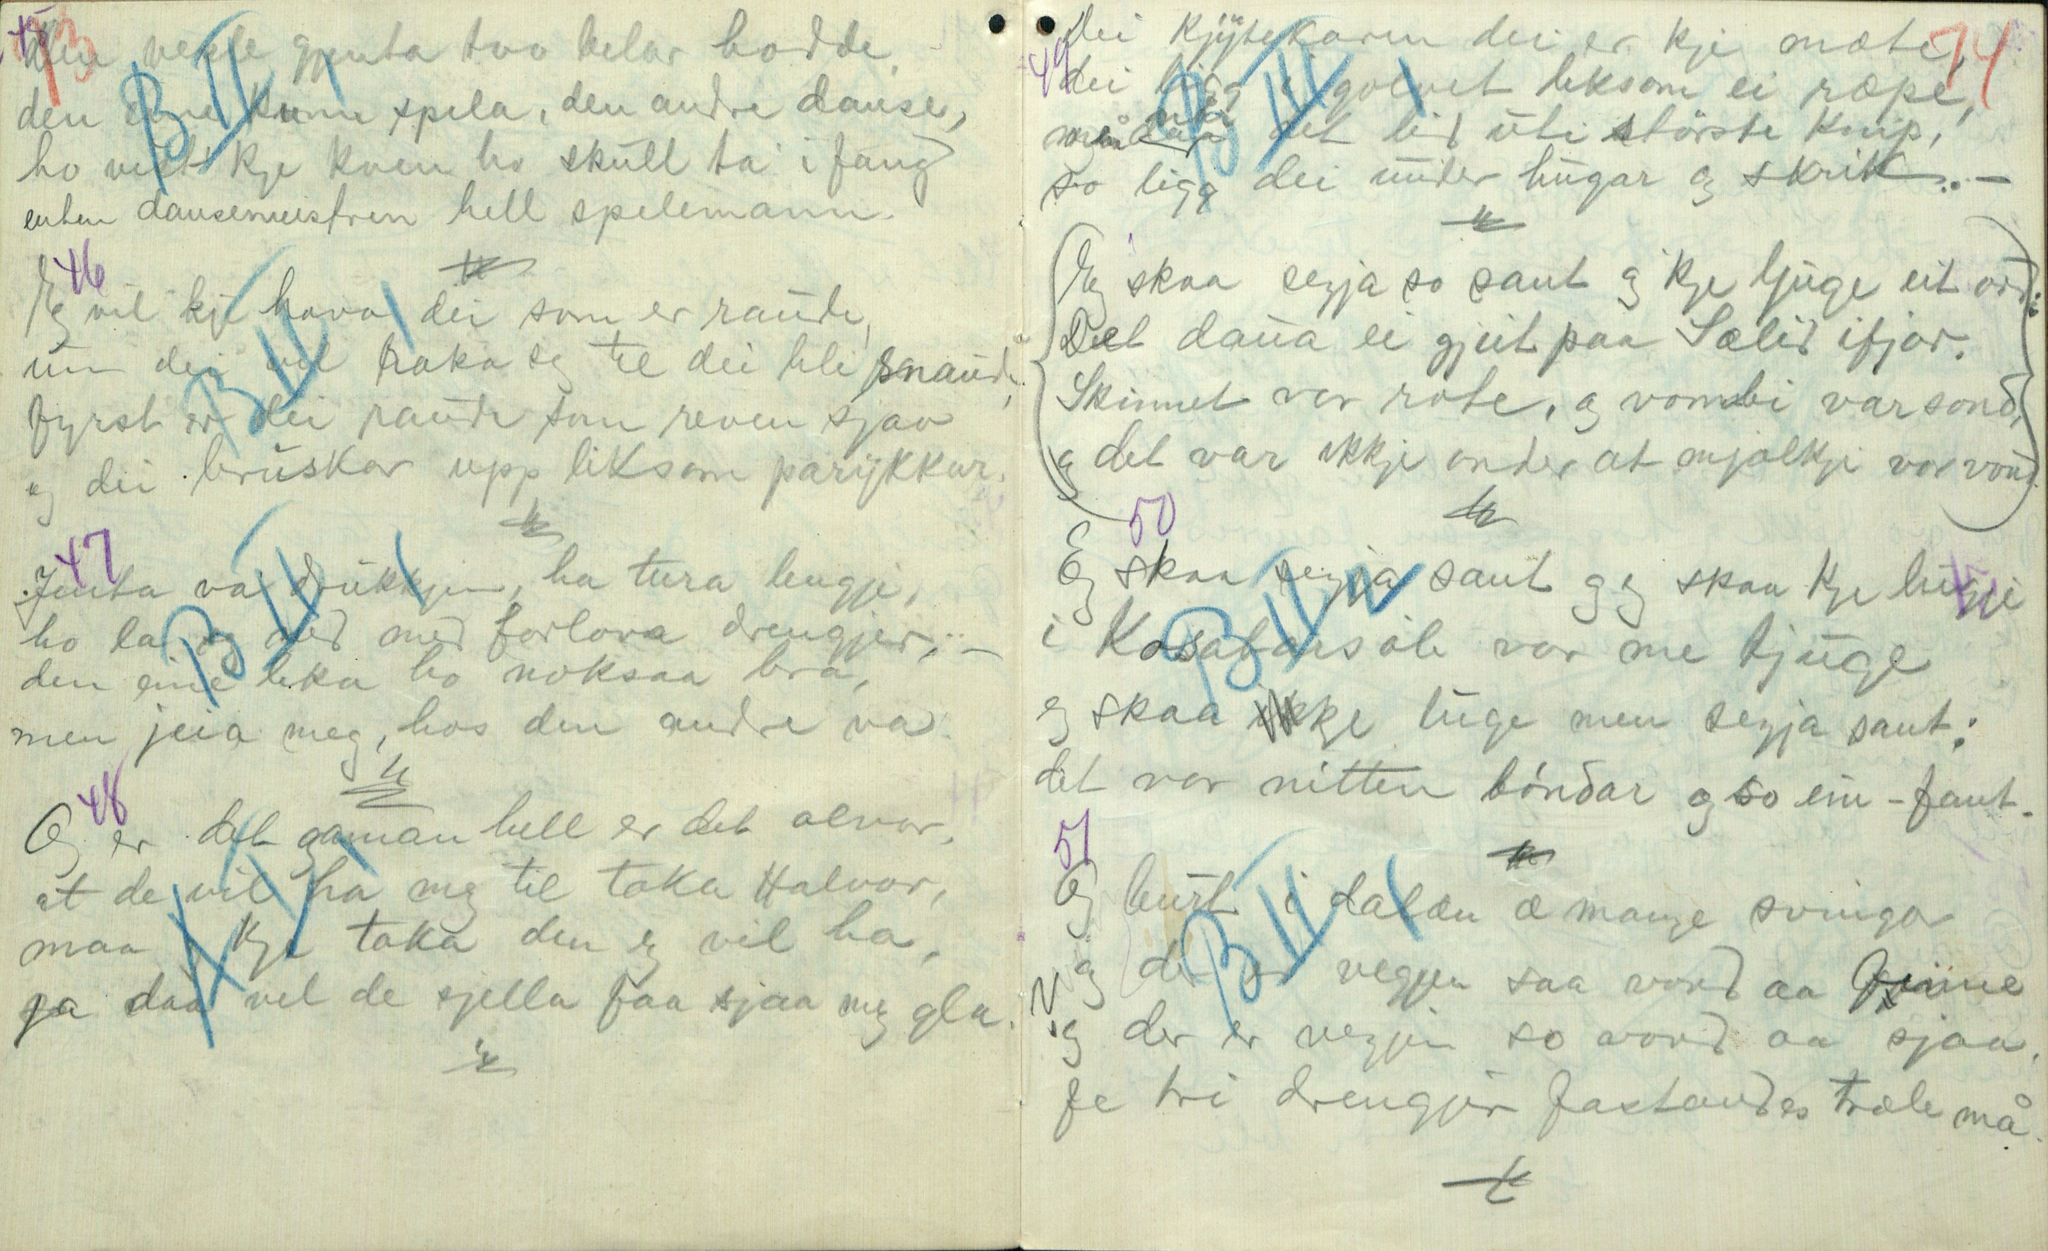 45
73
Den vesle gjenta tvo belar hadde,
den eine kunn spela, den andre danse,
ho visst kje kven ho skull ta i fang
enten dansemeistren hell spelemann.
46
Eg vil kje hava dei som er raude,
um dei vil raka seg til dei bli snaude,
fyrst er dei raude som reven sjav
og dei bruskar upp liksom parykkar.
47
Jenta va drukkjin, ha tura lengje,
ho la seg ned med forlova drengjer, –
den eine lika ho noksaa bra,
men jeia meg, hos den andre va.
48
Og er det gaman hell er det alvor,
at de vil ha meg til taka Halvor,
maa kje taka den eg vil ha,
ja daa vel de sjella faa sjaa meg gla.
74
49
Dei kjytekaren dei er kje mæte,
dei ligg i golvet liksom ei ræpe,
men naa det lid uti störste knip,
so ligg dei under hugar og skrik. –
Eg skaa segja so sant og kje ljuge eit ord:
Det daua ei gjeit paa Sælid ifjor.
Skinnet var rote, og vombi var sond,
og det var ikkje onder at mjølkji var vond.
50
Eg skaa segja sant og eg skaa kje
i var me tjuge
eg skaa ikkje luge men segja sant:
det var nitten böndar og so ein – fant.
51
Og burt i dalæn æ mange svinga
og der er vegjen saa vond aa finne
og der er vegjin so vond aa sjaa,
fe tri drengjer fastandes træle må.